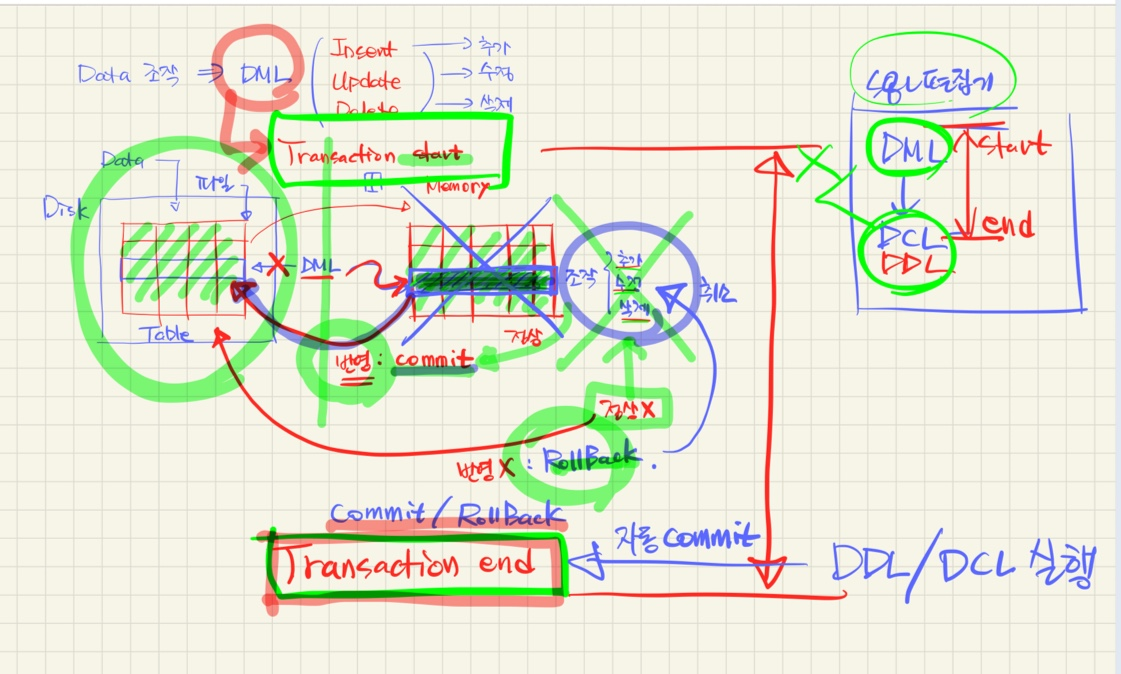 Data 조작 ⇒ DML
Insert → 추가
Update → 수정
Delete → 삭제
Transaction start
Memory
Data
파일
Disk
Table
DML
조작
추가
수정
삭제
취소
정상
반영 : commit
정상 X
반영 X : RollBack.
Commit / RollBack
Transaction end
자동 commit
DDL/DCL 실행
DML
start
DCL
DDL
end